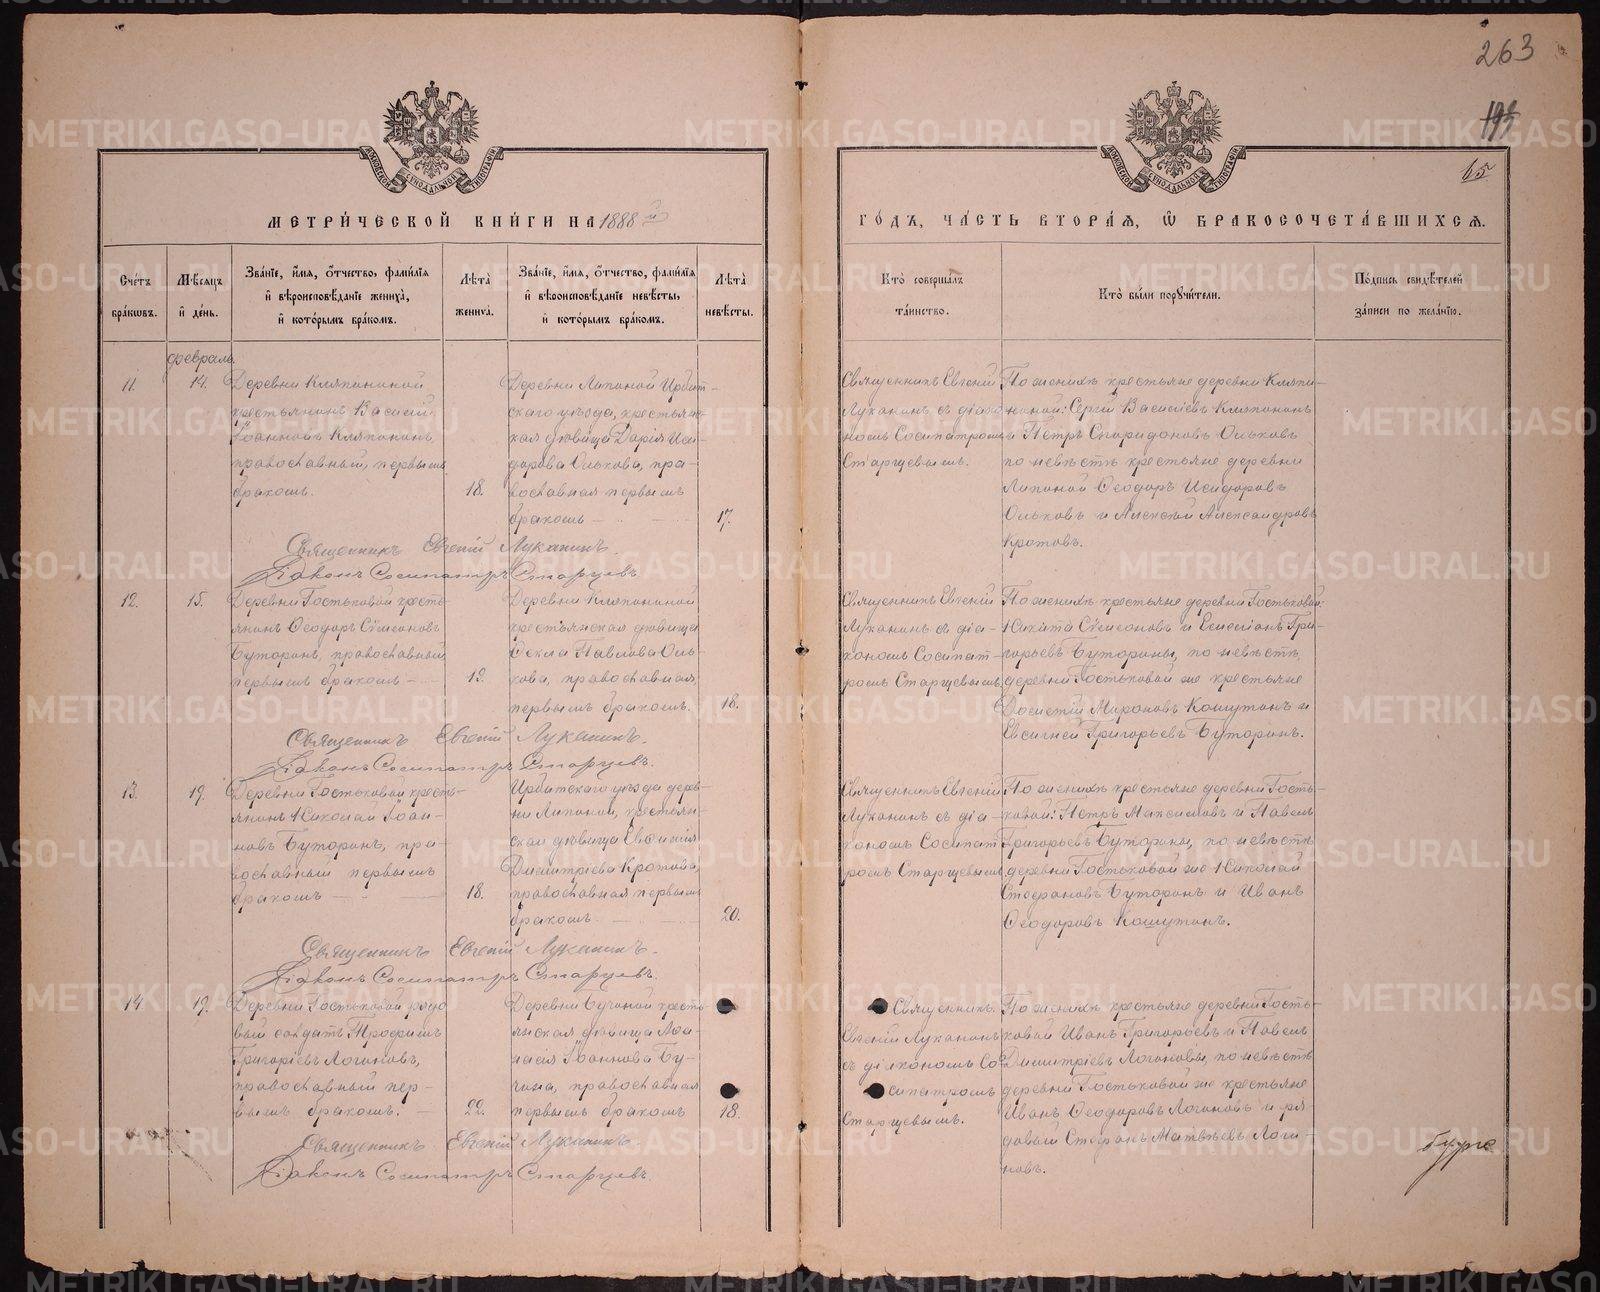 263
65
МОСКОВСКОЙ СѴНОДАЛЬНОЙ ТИПОГРАФІИ
МОСКОВСКОЙ СѴНОДАЛЬНОЙ ТИПОГРАФІИ
МЕТРИ́ЧЕСКОЙ КНИ́ГИ НА 1888 й
ГО́ДЪ, ЧА́СТЬ ВТОРА́Я, Ѽ БРАКОСОЧЕТА́ВШИХСЯ.
Сче́тъ бра́кѡвъ.
Мѣ́сяцъ и҆ де́нь.
Зва́нїе, и҆́мя, ѻ҆́тчество, фами́лїя и҆ вѣроисповѣ́данїе жениха̀, и҆ кото́рымъ бра́комъ.
Лѣ́та жениха̀.
Зва́нїе, и҆́мя, ѻ҆́тчество, фами́лїя и҆ вѣроисповѣ́данїе невѣ́сты, и҆ кото́рымъ бра́комъ.
Лѣ́та невѣ́сты.
Кто̀ соверша́лъ та́инство.
Кто̀ бы́ли порꙋчи́тели.
По́дпись свидѣ́телей за́писи по жела́нїю.
февраль.
11.
14.
Деревни Кляпиной
крестьянинъ Василій
Іоанновъ Кляпининъ
православный, первымъ
бракомъ.
18.
Деревни Липиной Ирбит-
скаго уѣзда, крестьян-
ская дѣвица Дарія Иси-
дорова Олькова, пра-
вославная первымъ
бракомъ
17.
Священникъ Евгеній
Луканинъ съ діако
номъ Сосипатромъ
Старцевымъ.
По женихѣ крестьяне деревни Кляпи-
ниной: Сергій Васильевъ Кляпининъ
и Петръ Спиридоновъ Ольковъ
по невѣстѣ крестьяне деревни
Липиной Ѳеодоръ Исидоровъ
Ольковъ и Алексѣй Александровъ
Кротовъ.
Священникъ Евгеній Луканинъ.
Діаконъ Сосипатръ Старцевъ
12.
15.
Деревни Гостьковой кресть-
янинъ Ѳеодоръ Сѵмеоновъ
Буторинъ, православный
первымъ бракомъ
19.
Деревни Кляпининой
крестьянская дѣвица
Ѳекла Павлова Оль-
кова, православная
первымъ бракомъ.
18.
Священникъ Евгеній
Луканинъ съ діа-
кономъ Сосипат-
ромъ Старцевымъ
По женихѣ крестьяне деревни Гостьковой:
Никита Сѵмеоновъ и Емеліанъ Гри-
горьевъ Буторины, по невѣстѣ,
деревни Гостьковой же крестьяне
Мироновъ Кошутинъ и
Евсигней Григорьевъ Буторинъ.
Священникъ Евгеній Луканинъ.
Діаконъ Сосипатръ Старцевъ.
13.
19.
Деревни Гостьковой кресть-
янинъ Николай Іоан-
новъ Буторинъ, пра-
вославный первымъ
бракомъ
18.
Ирбитскаго уѣзда дерев-
ни Липиной, крестьян-
ская дѣвица Евѳимія
Димитріева Кротова,
православная первымъ
бракомъ
20.
Священникъ Евгеній
Луканинъ съ діа-
кономъ Сосипат
ромъ Старцевымъ
По женихѣ крестьяне деревни Гость-
ковой: Петръ Максимовъ и Павелъ
Григорьевъ Буторины, по невѣстѣ
деревни Гостьковой же Николай
Стефановъ Буторинъ и Иванъ
Ѳеодоровъ Кошутинъ.
Священникъ Евгеній Луканинъ.
Діаконъ Сосипатръ Старцевъ.
14.
19.
Деревни Гостьковой рядо
вый солдатъ Трофимъ
Григоріевъ Логиновъ,
православный пер-
вымъ бракомъ.
22.
Деревни Бучиной кресть
янская дѣвица
Іоаннова Бу-
чина, православная
первымъ бракомъ
18.
Священникъ
Евгеній Луканинъ
съ діакономъ Со-
сипатромъ
Старцевымъ.
По женихѣ крестьяне деревни Гость-
ковой Иванъ Григорьевъ и Павелъ
Димитріевъ Логиновы, по невѣстѣ
деревни Гостьковой же крестьяне
Иванъ Ѳеодоровъ Логиновъ и ря
довой Стефанъ Матвѣевъ Логи-
новъ.
Священникъ Евгеній Луканинъ.
Діаконъ Сосипатръ Старцевъ.
METRIKI.GASO-URAL.RU